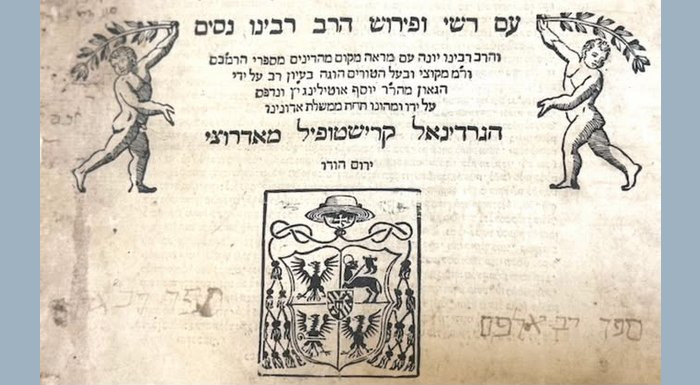 עם רשי ופירוש הרב רבינו נסים
והרב רבינו יונה עם מראה מקום מהדינים מספרי הרמבם
ור״מ מקוצי ובעל הטורים הוגה בעיון רב על ידי
הגאון מהר״ר יוסף אוטילינג״ץ ונדפס
על ידו ומהונו תחת ממשלת אדונינו
הגרדינאל קרישטופיל מאדרוצי
ירום הודו
ספר רב אלפס